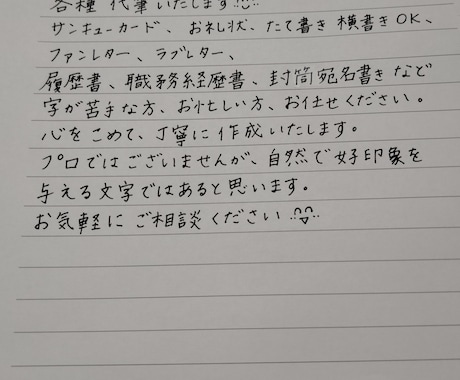 各種 代筆いたします
サンキューカード、お礼状、たて書き 横書きOK、
ファンレター、ラブレター、
履歴書、職務経歴書、封筒宛名書きなど
字が苦手な方、お忙しい方、お任せください。
心をこめて、丁寧に作成いたします。
プロではございませんが、自然で好印象を
与える文字ではあると思います。
お気軽にご相談ください